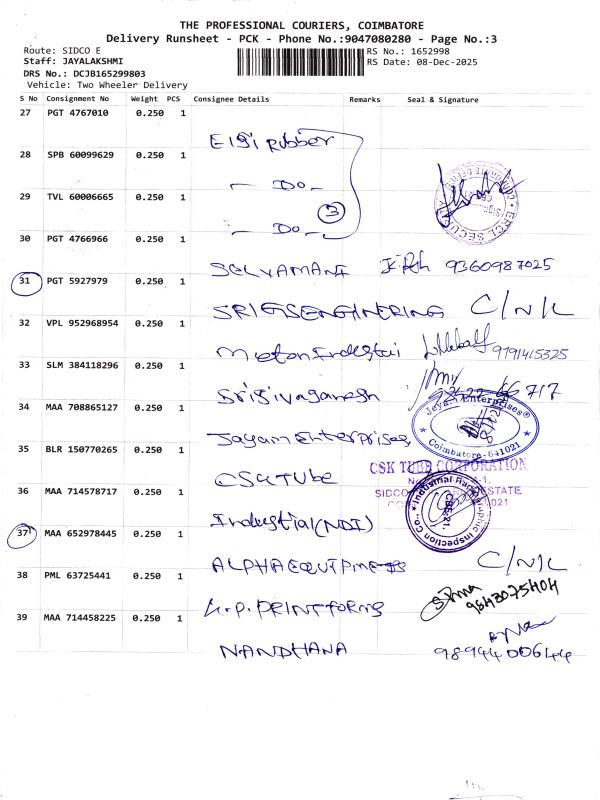 THE PROFESSIONAL COURIERS, COIMBATORE
Delivery Runsheet - PCK - Phone No.:9047080280 - Page No.:3
Route: SIDCO E
RS No.: 1652998
Staff: JAYALAKSHMI
RS Date: 08-Dec-2025
DRS No.: DCJB165299803
Vehicle: Two Wheeler Delivery
S No Consignment No Weight PCS Consignee Details Remarks Seal & Signature
27 PGT 4767010 0.250 1
Elgi Rubber
28 SPB 60099629 0.250 1
- Do -
29 TVL 60006665 0.250 1
3
- Do -
30 PGT 4766966 0.250 1
SELVAMANI 9360987025
31 PGT 5927979 0.250 1
SRI GS ENGINERING C/N/L
32 VPL 952968954 0.250 1
9791415325
33 SLM 384118296 0.250 1
Srisivaganesh
34 MAA 708865127 0.250 1
Jayam Enterprises
Jayam Enterprises
Coimbatore-641021
35 BLR 150770265 0.250 1
CSK TUBE
CSK TUBE CORPORATION
36 MAA 714578717 0.250 1
Industial (NDI)
37 MAA 652978445 0.250 1
ALPHA EQUIPMESS C/N/L
38 PML 63725441 0.250 1
K.P. PRINTFORMS
9843075404
39 MAA 714458225 0.250 1
NANDHANA
98944 00644